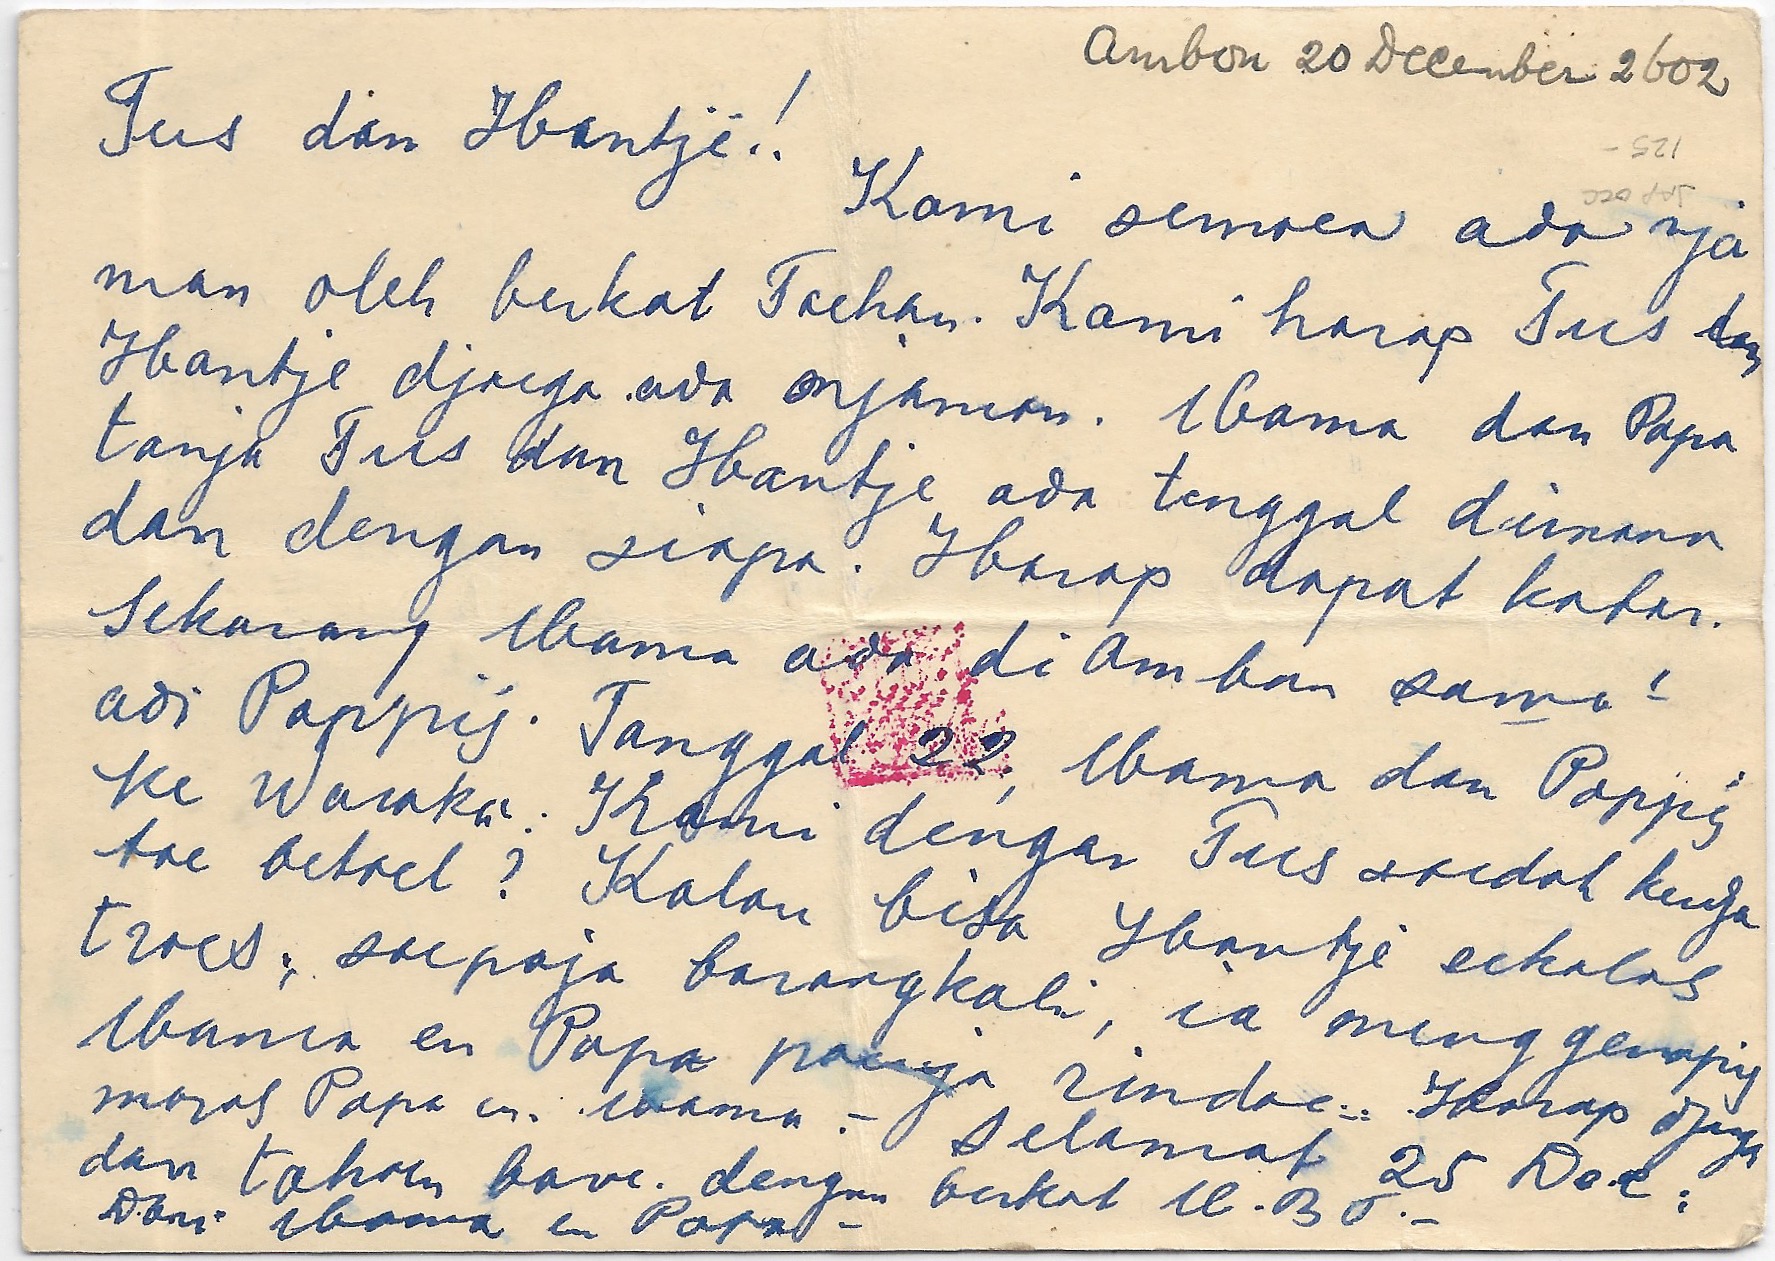 Ambon 20 December 2602
125 -
Jap occ
Tus dan Hantje!
Kami semoea ada nja
man oleh berkat Toehan. Kami harap Tus dan
Hantje djoega ada njaman. Mama dan Papa
tanja Tus dan Hantje ada tenggal dimana
dan dengan siapa. Harap dapat kabar.
Sekarang Mama ada di Ambon sama
adi Poppij. Tanggal 22, Mama dan Poppij
ke Waraka. Kami dengar Tus soedah kerdja
toe betoel? Kalau bisa Hantje sekolas
troes, soepaja barangkali, ia menggenapij
Mama en Papa poenja rindoe. Harap djangan
maras Papa en Mama. - Selamat 25 Dec.
dan tahoen baroe. dengan berkat
Dari Mama en Papa -